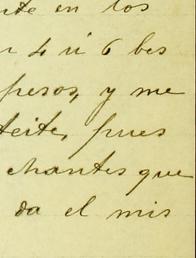 nte en los
4 ú 6 bes
pesos, y me
teite, pues
chantes que
da el mis